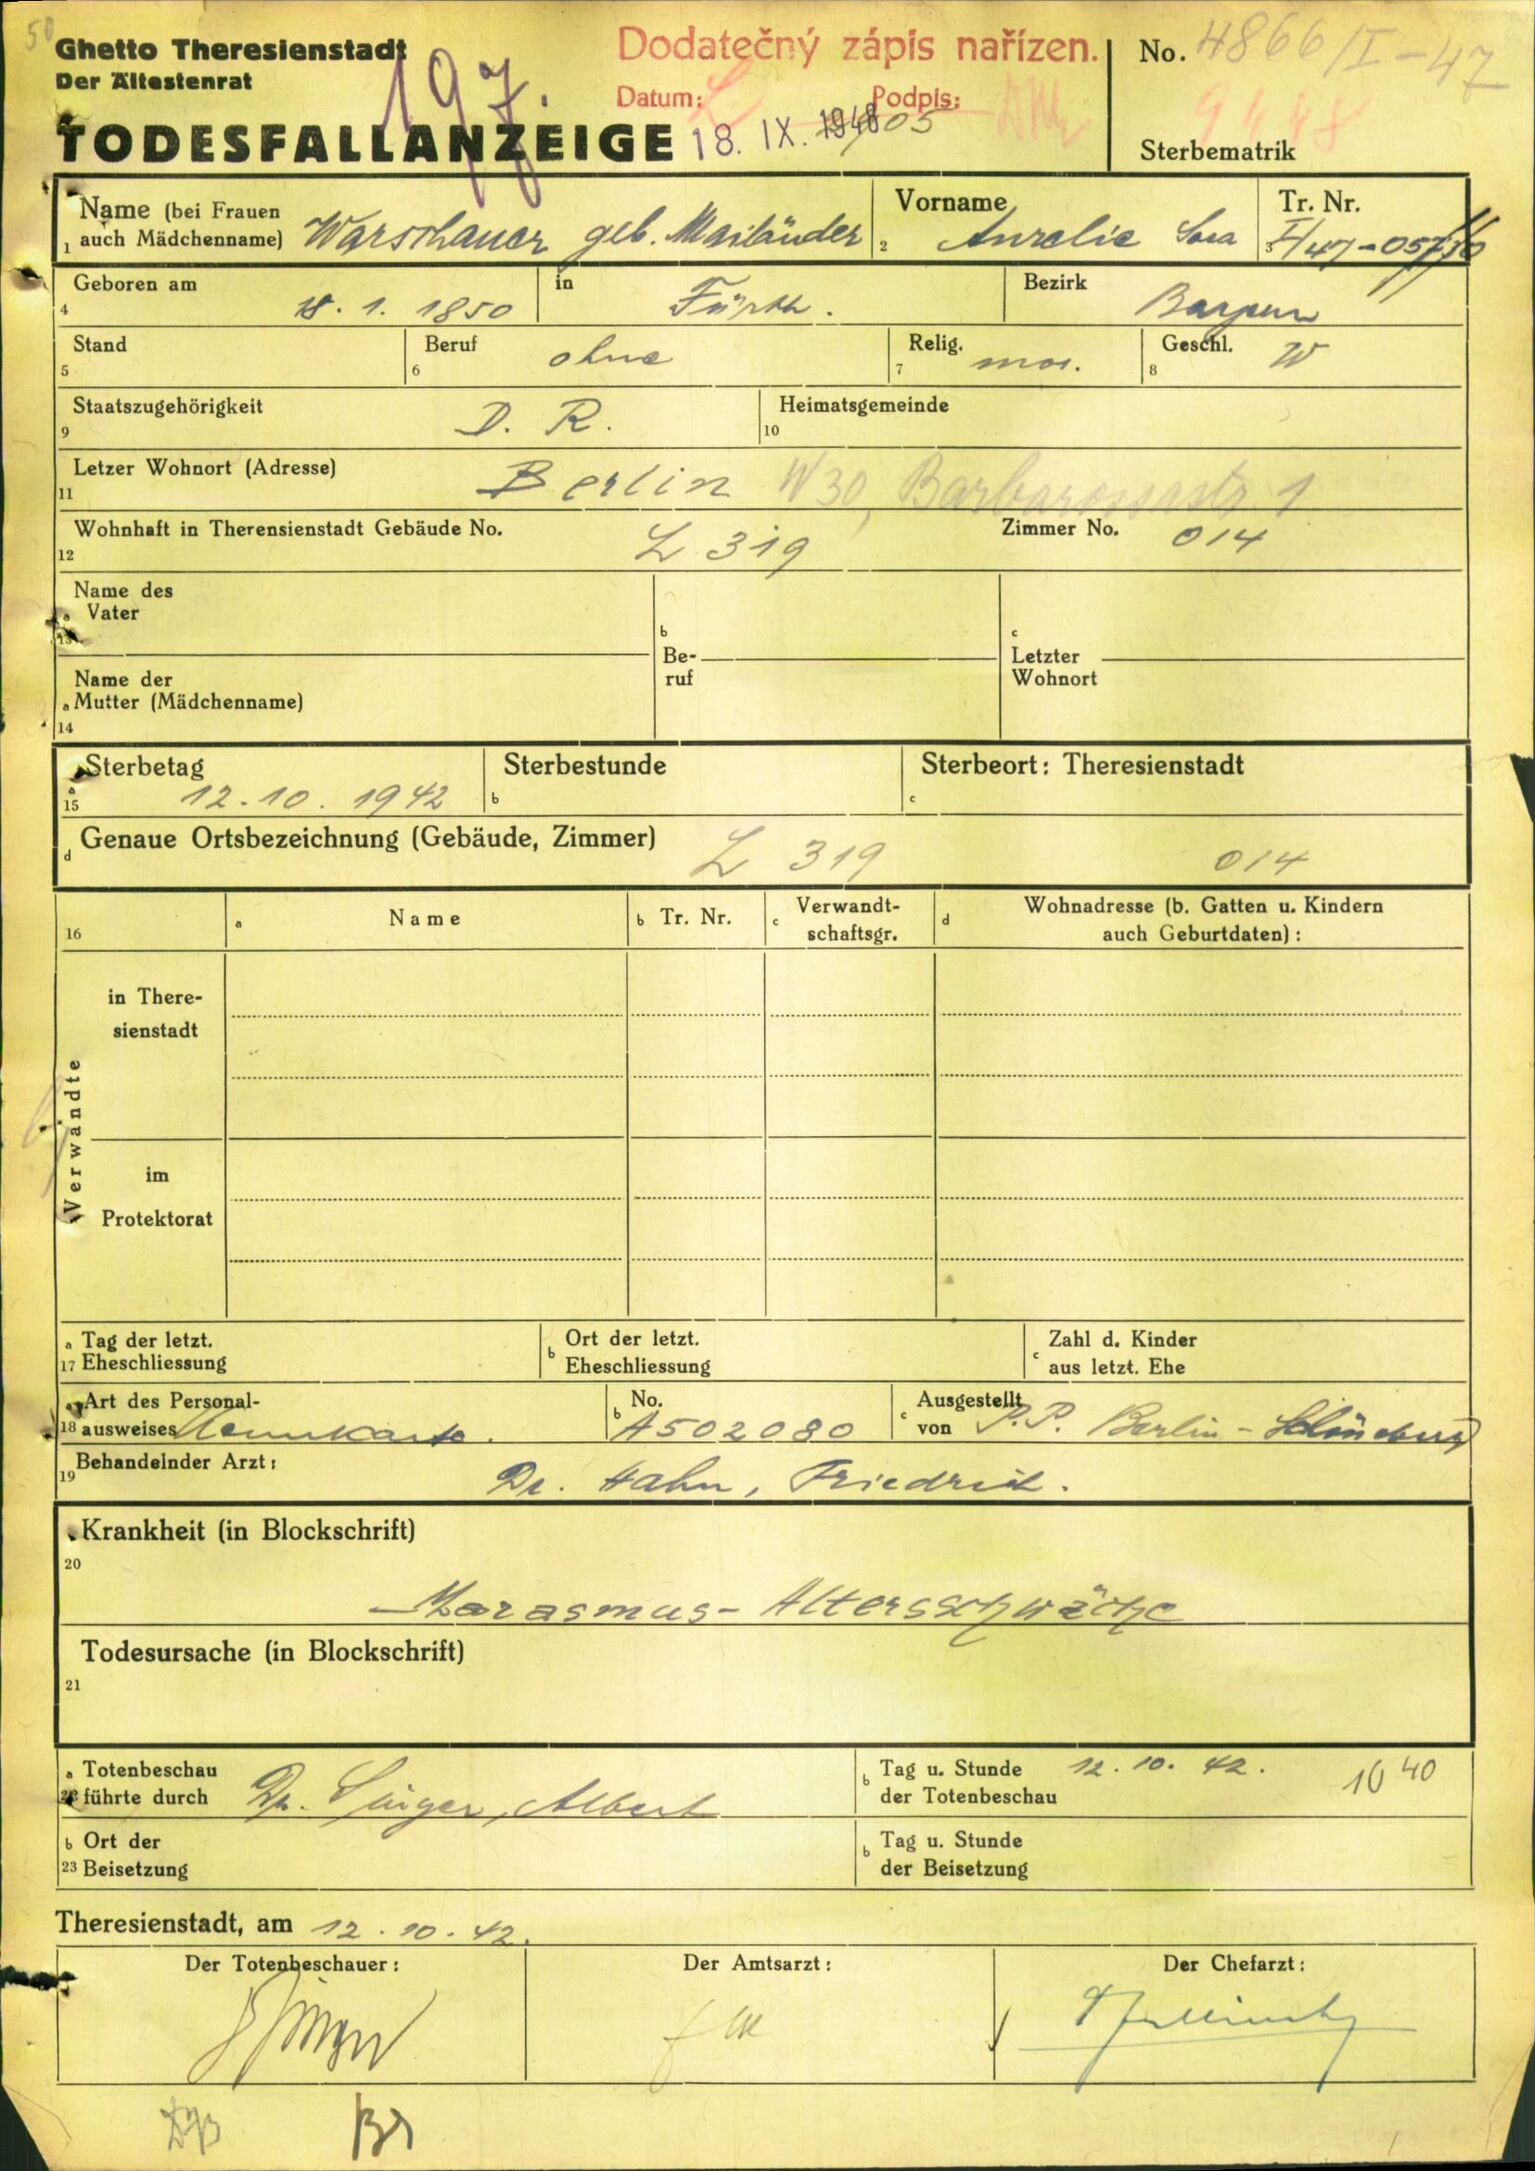 50
Ghetto Theresienstadt
Der Ältestenrat
TODESFALLANZEIGE
197.
Dodatečný zápis nařízen.
Datum: Podpis:
18. IX. 1948
No. 4866/I-47
9448
Sterbematrik
Name (bei Frauen auch Mädchenname) Warschauer geb. Mailänder
1
Vorname Aurelie Sara
2
Tr. Nr.
3 I/47-05730
Geboren am 18. 1. 1850
4
in Fürth.
Bezirk Bayern
Stand
5
Beruf ohne
6
Relig. mos.
7
Geschl. W
8
Staatszugehörigkeit D. R.
9
Heimatsgemeinde
10
Letzer Wohnort (Adresse) Berlin W30, Barbarossastr. 1
11
Wohnhaft in Therensienstadt Gebäude No. L 319 Zimmer No. 014
12
Name des
a Vater
13
b Be-
ruf
c Letzter
Wohnort
Name der
a Mutter (Mädchenname)
14
Sterbetag
a
15 12.10.1942
Sterbestunde
b
Sterbeort: Theresienstadt
c
d Genaue Ortsbezeichnung (Gebäude, Zimmer) L 319 014
16
a Name
b Tr. Nr.
c Verwandt-
schaftsgr.
d Wohnadresse (b. Gatten u. Kindern
auch Geburtdaten):
Verwandte
in There-
sienstadt
im
Protektorat
a Tag der letzt.
17 Eheschliessung
b Ort der letzt.
Eheschliessung
c Zahl d. Kinder
aus letzt. Ehe
a Art des Personal-
18 ausweises Kennkarte.
b No. A502080
c Ausgestellt
von P.P. Berlin - Schöneberg
Behandelnder Arzt: Dr. Hahn, Friedrich.
19
Krankheit (in Blockschrift)
20
Marasmus - Altersschwäche
Todesursache (in Blockschrift)
21
a Totenbeschau
22 führte durch Dr. Singer, Albert
b Tag u. Stunde 12.10.42. 10 40
der Totenbeschau
b Ort der
23 Beisetzung
b Tag u. Stunde
der Beisetzung
Theresienstadt, am 12.10.42.
Der Totenbeschauer:
Der Amtsarzt:
Der Chefarzt: